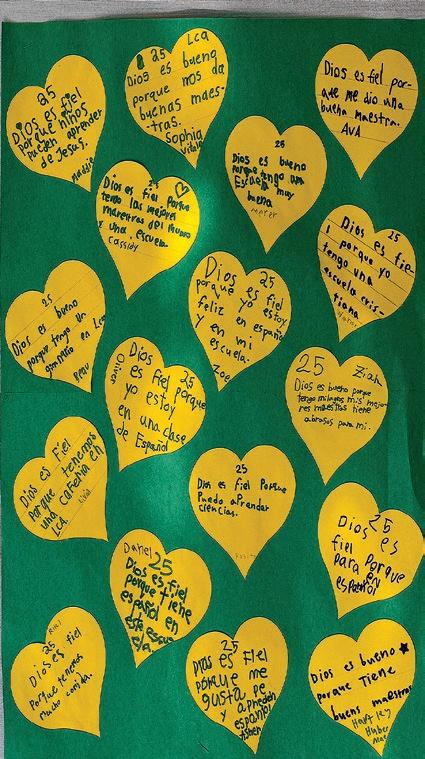 25
Dios es fiel
porque niños
pueden aprender
de Jesus.
Maggie
25 Lca
Dios es bueno
porque nos da
buenas maes-
-tras.
Sophia
Dios es fiel por-
que me dio una
buena maestra.
AVA
Dios es fiel Porque
tengo las mejores
maestras del mundo
y una escuela.
Cassidy
25
Dios es bueno
porque tengo una
Escuela muy
buena
25
Dios es fie-
l porque yo
tengo una
escuela cris-
tiana
25
Dios es bueno
porque tengo un
gimnasio en Lca
Beau
Dios 25
es fiel
porque yo estoy
feliz en español
y en mi
escuela.
Zoe
Oliver
Dios
es fiel 25
porque
yo estoy
en una clase
de Español
25 Ziah
Dios es bueno porque
tengo milagros mis mejo-
res maestras tiene
abrosos para mi.
Dios es fiel
porque tenemos
una cafetria en
Lca
25
Dios es fiel Porque
Puedo aPrender
ciencias.
Dios 25
es
fiel Porque
para en
español
Daniel 25
Dios es fiel
porque tiene
español en
esta escue
la.
25
Dios es fiel
Porque tenemos
mucho comida.
25
Dios es Fiel
porque me
gusta pe
aprender
español
Dios es bueno
porque Tiene
buens maestros
Hartley
Huber